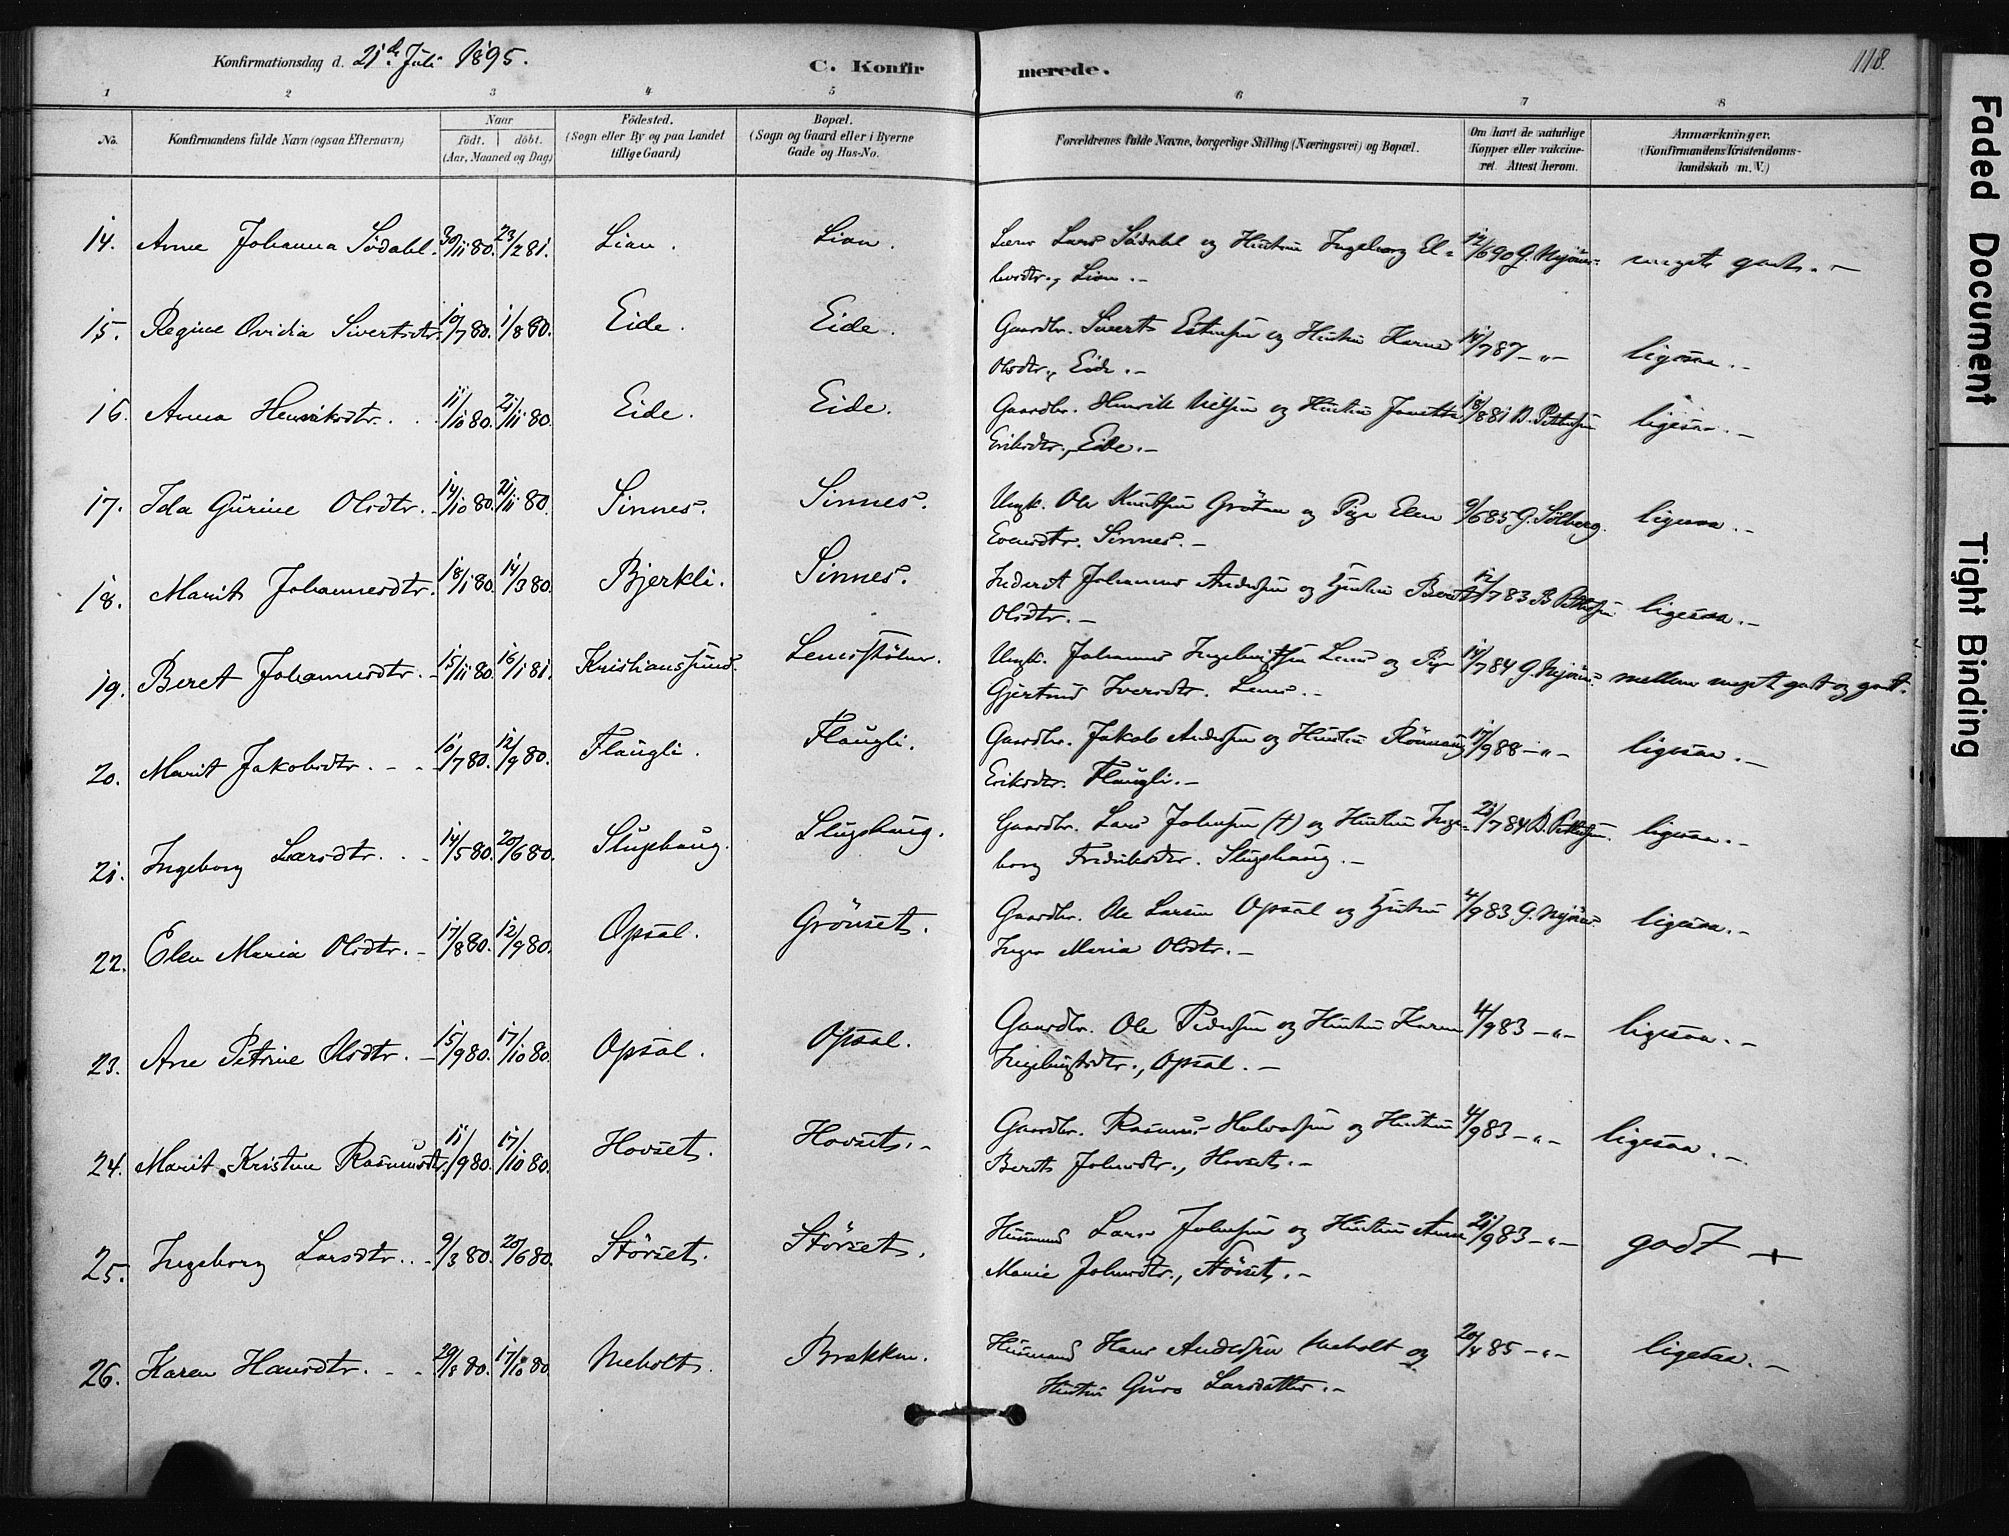 Konfirmationsdag d. 21de Juli 1895.
C. Konfirmerede.
118.
1 2 3 4 5 6 7 8
No.
Konfirmandens fulde Navn (ogsaa Efternavn)
Naar
födt. döbt.
(Aar, Maaned og Dag)
Födested.
(Sogn eller By og paa Landet
tillige Gaard)
Bopæl.
(Sogn og Gaard eller i Byerne
Gade og Hus-No.
Forældrenes fulde Navne, borgerlige Stilling (Næringsvei) og Bopæl.
Om havt de naturlige
Kopper eller vakcine-
ret. Attest herom.
Anmærkninger.
(Konfirmandens Kristendoms-
kundskab m. V.)
14. Anne Johanna Södahl. 30/11 80. 23/2 81. Lian. Lian. Lars Södahl og Hustru Ingeborg El- 12/6 90 meget godt. -
Lian. -
15. Regine Ovidia Sivertsdtr. 10/7 80. 1/8 80. Eide. Eide. Gaardbr. Sivert Estensen og Hustru Karen 14/7 87 - " - ligesaa. -
Olsdtr., Eide. -
16. Anna Henriksdtr. 11/10 80. 21/11 80. Eide. Eide. Gaardbr. Henrik Nilsen og Hustru 18/8 81 B. Pettersen ligesaa. -
Eriksdtr., Eide. -
17. Ida Gurine Olsdtr. 14/10 80. 21/11 80. Sinnes. Sinnes. Ungk. Ole Knudsen Grötan og Pige Elen 9/6 85 G. Sölberg. ligesaa. -
Evensdtr. Sinnes. -
18. Marit Johannesdtr. 18/1 80. 14/3 80. Bjerkli. Sinnes. Inderst Johannes Andersen og Hustru Beret 12/7 83 B. Pettersen ligesaa. -
Olsdtr. -
19. Beret Johannesdtr. 15/11 80. 16/1 81. Kristianssund. Ungk. Johannes Ingebrigtsen og Pige 14/7 84 mellem meget godt og godt.
Gjertrud Iversdtr. -
20. Marit Jakobsdtr. - - 10/7 80. 12/9 80. Flaugli. Flaugli. Gaardbr. Jakob Andersen og Hustru Rönnaug 17/9 88 - " - ligesaa. -
Eriksdtr. Flaugli. -
21. Ingeborg Larsdtr. 14/5 80. 20/6 80. Slupshaug. Slupshaug. Gaardbr. Lars Johnsen (+) og Hustru Inge- 21/7 84 B. Pettersen. ligesaa. -
borg Fredriksdtr. Slupshaug. -
22. Elen Maria Olsdtr. - 17/8 80. 12/9 80. Opsal. Grönset. Gaardbr. Ole Larsen Opsal og Hustru 4/9 83 ligesaa. -
Inger Maria Olsdtr. -
23. Ane Petrine Olsdtr. - 15/9 80. 17/10 80. Opsal. Opsal. Gaardbr. Ole Pedersen og Hustru Karen 4/9 83 - " - ligesaa. -
Ingebrigtsdtr., Opsal. -
24. Marit Kristine Rasmusdtr. 11/9 80. 17/10 80. Hovset. Hovset. - Gaardbr. Rasmus Halvorsen og Hustru 4/9 83 - " - ligesaa. -
Berit Johnsdtr., Hovset. -
25. Ingeborg Larsdtr. 9/3 80. 20/6 80. Störset. Störset. Husmand Lars Johnsen og Hustru Anne 21/9 83 - " - godt -
Marie Johnsdtr., Störset. -
26. Karen Hansdtr. - - 29/8 80. 17/10 80. Meholt. Brækken. Husmand Hans Andersen Meholt og 20/4 85 - " - ligesaa. -
Hustru Guro Larsdatter. -
Faded Document
Tight Binding